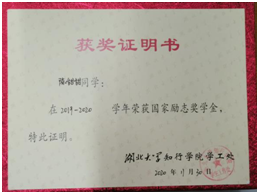 获奖证明书
同学：
在2019-2020 学年荣获国家励志奖学金，
特此证明。
湖北大学知行学院学工处
2020年11月30日